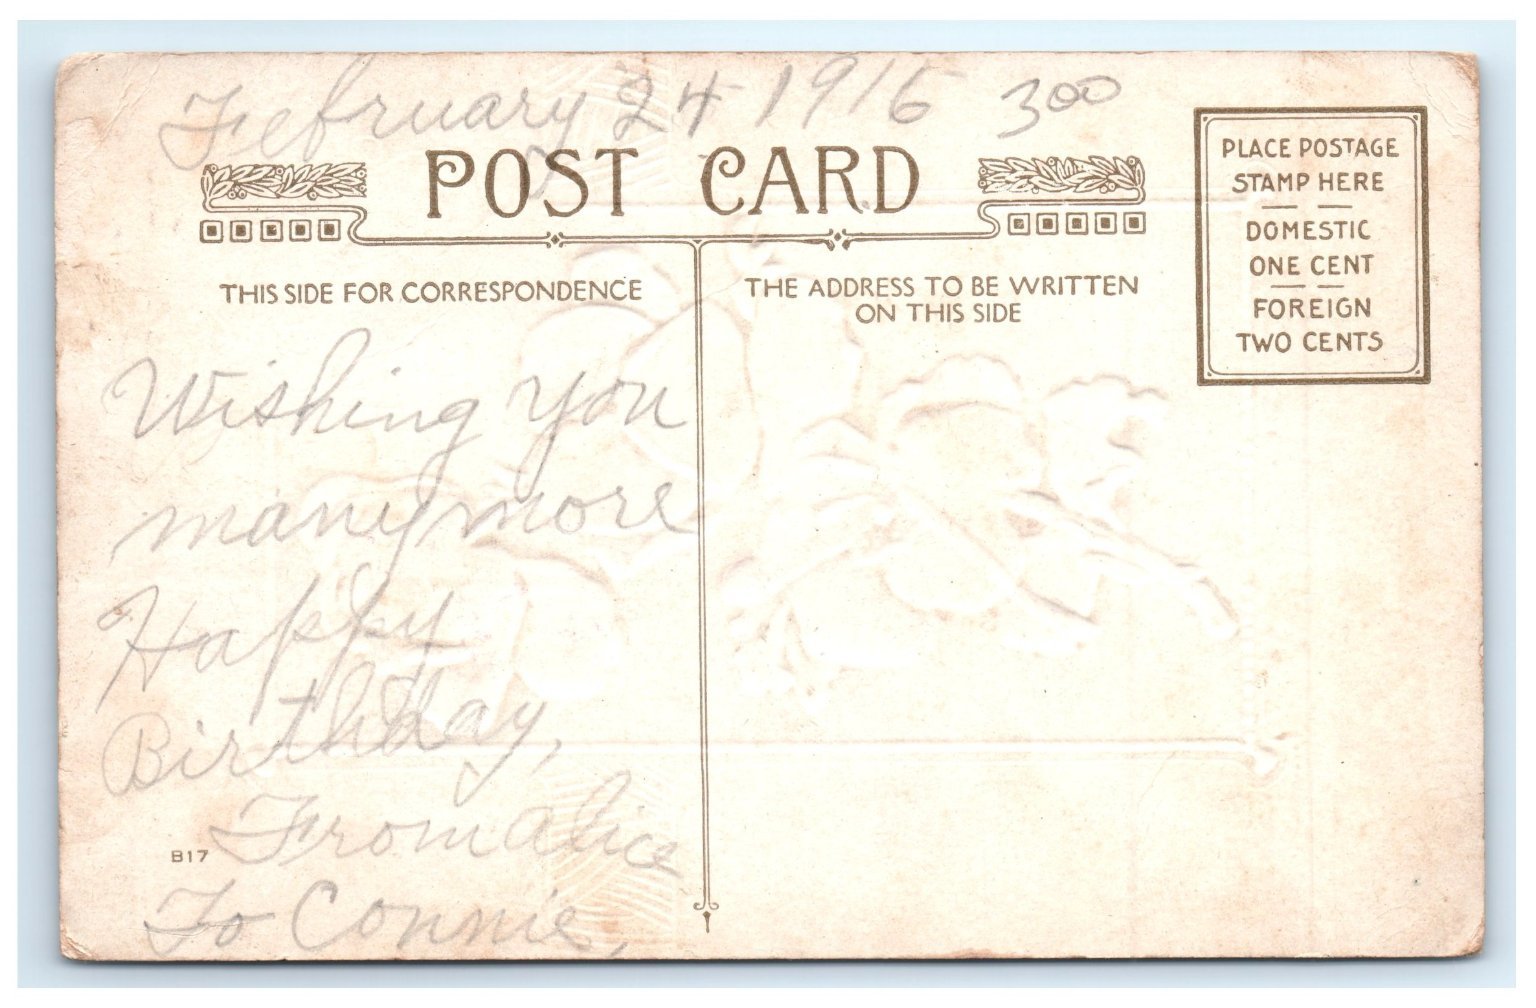 February 24 1916 300
POST CARD
PLACE POSTAGE
STAMP HERE
DOMESTIC
ONE CENT
FOREIGN
TWO CENTS
THIS SIDE FOR CORRESPONDENCE
THE ADDRESS TO BE WRITTEN
ON THIS SIDE
Wishing you
many more
Happy
Birthday,
From Alice
B17
To Connie,